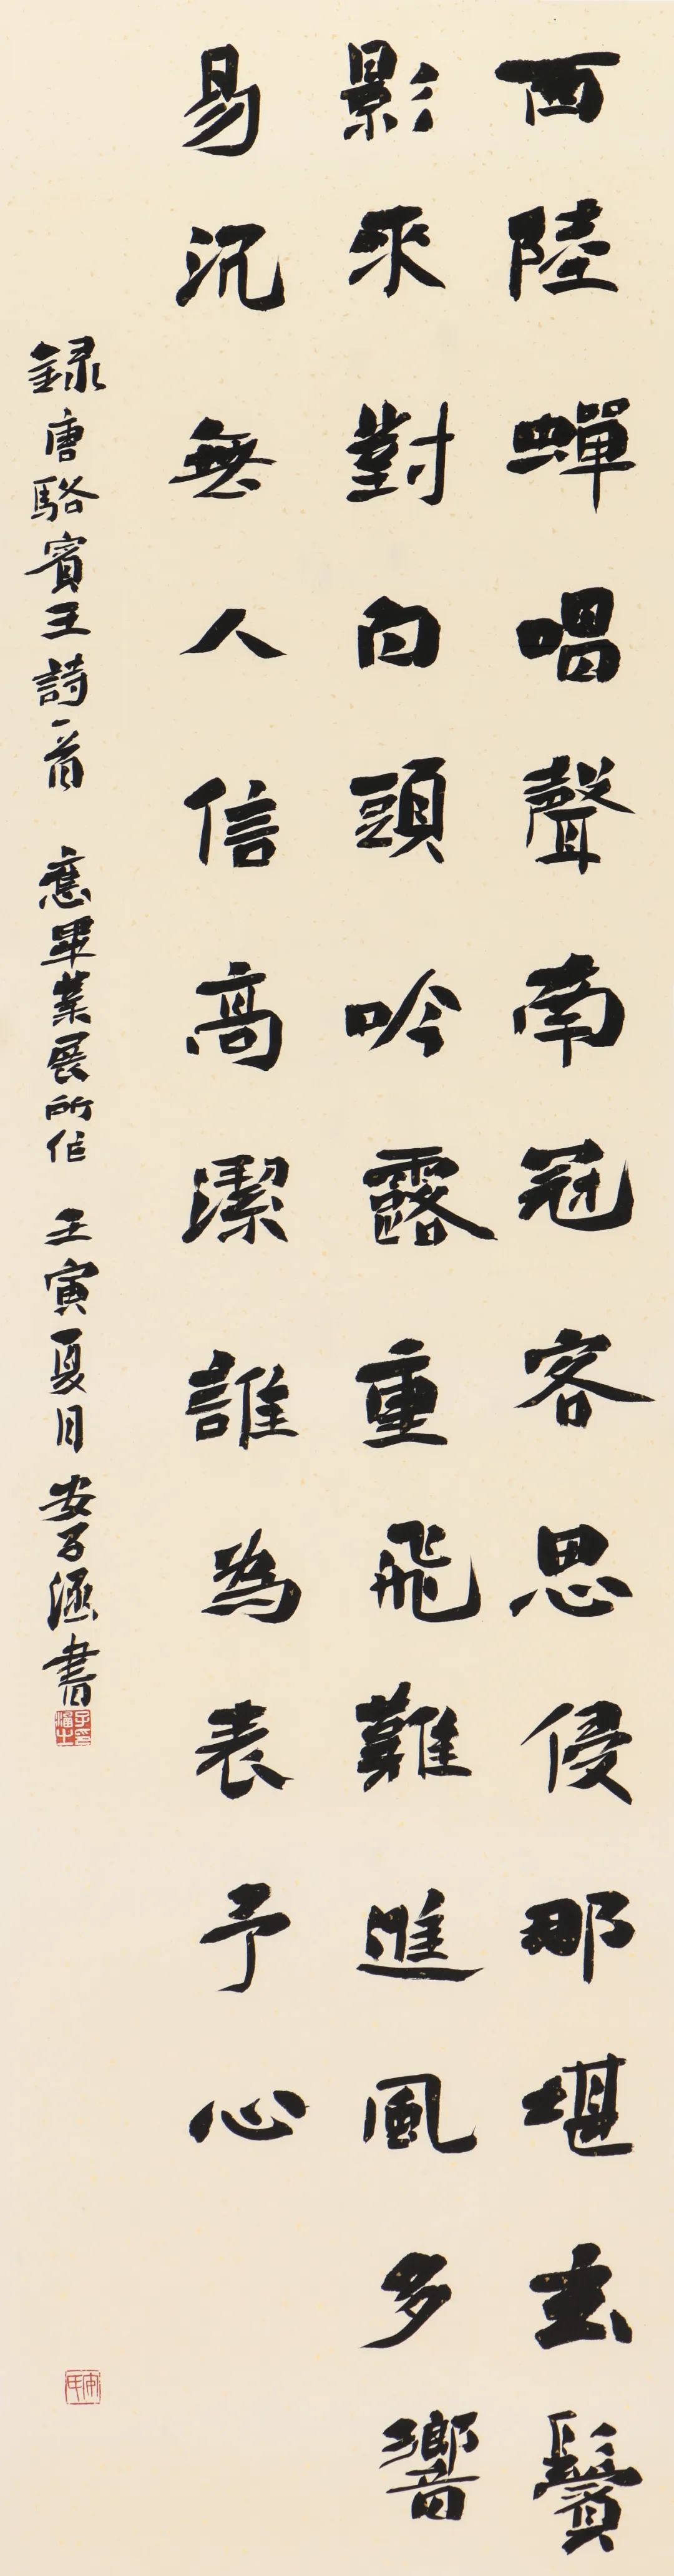 西陸蟬唱聲南冠客思侵那堪玄鬢
影來對白頭吟露重飛難進風多響
易沉無人信高潔誰為表予心
錄唐駱賓王詩一首 應畢業展所作 壬寅夏月 安子涵書